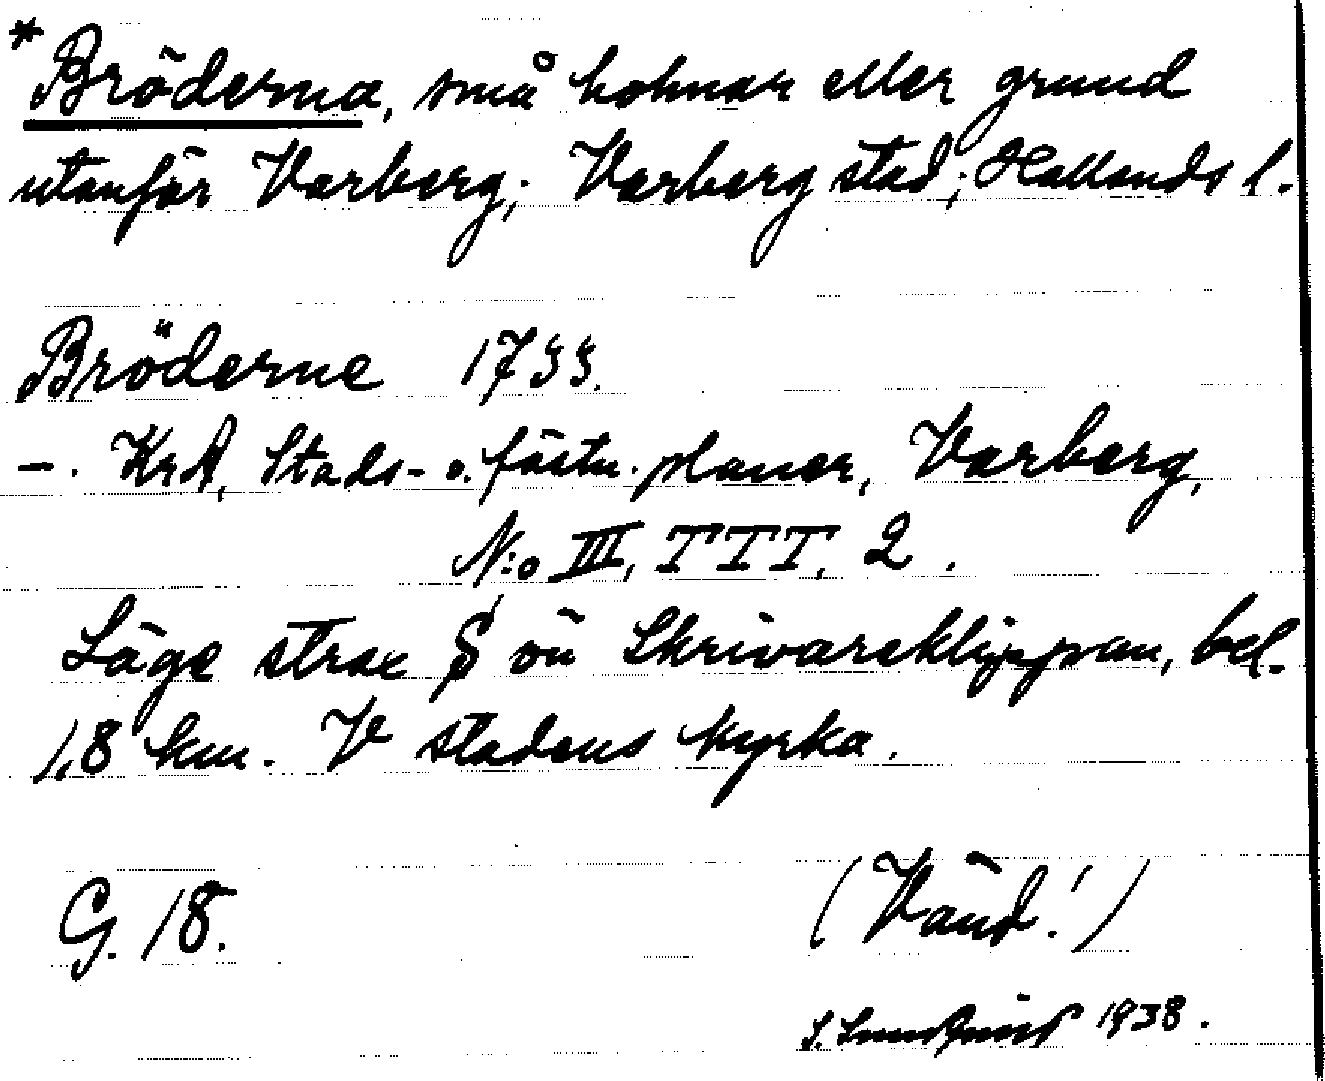 *Bröderna, små holmar eller grund
utanför Varberg; Varberg stad; Hallands l.
Bröderne 1733.
—. KrA, Stads- o. fästn. planer, Varberg,
N:o III, TTT, 2.
Läge strax S om Skrivareklippan, bel.
1,8 km. V stadens kyrka.
G. 18.
(Vänd!)
S. Lundqvist 1938.